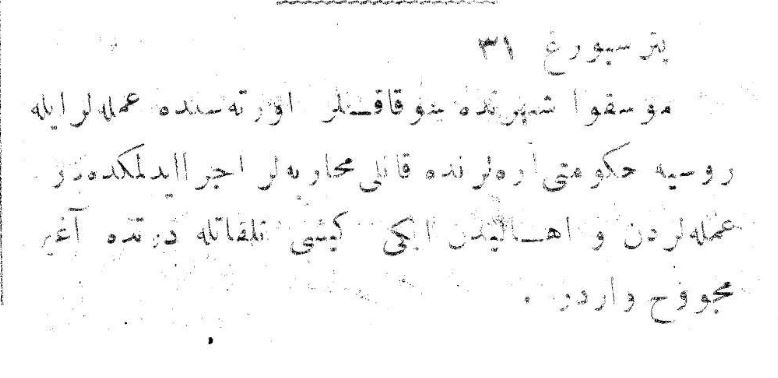 پترسبورغ ۳۱
موسقوا شهرنده سوقاقلر اورته‌سنده عمله‌لر ایله
روسیه حکومتی آره‌لرنده قانلی محاربه‌لر اجرا ایدلمکده‌در
عمله‌لردن و اهالیدن ایکی کیشی تلفاتله درتده آغیر
مجروح واردر .